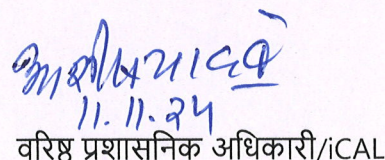 आशीष यादव
11.11.24
वरिष्ठ प्रशासनिक अधिकारी/iCAL